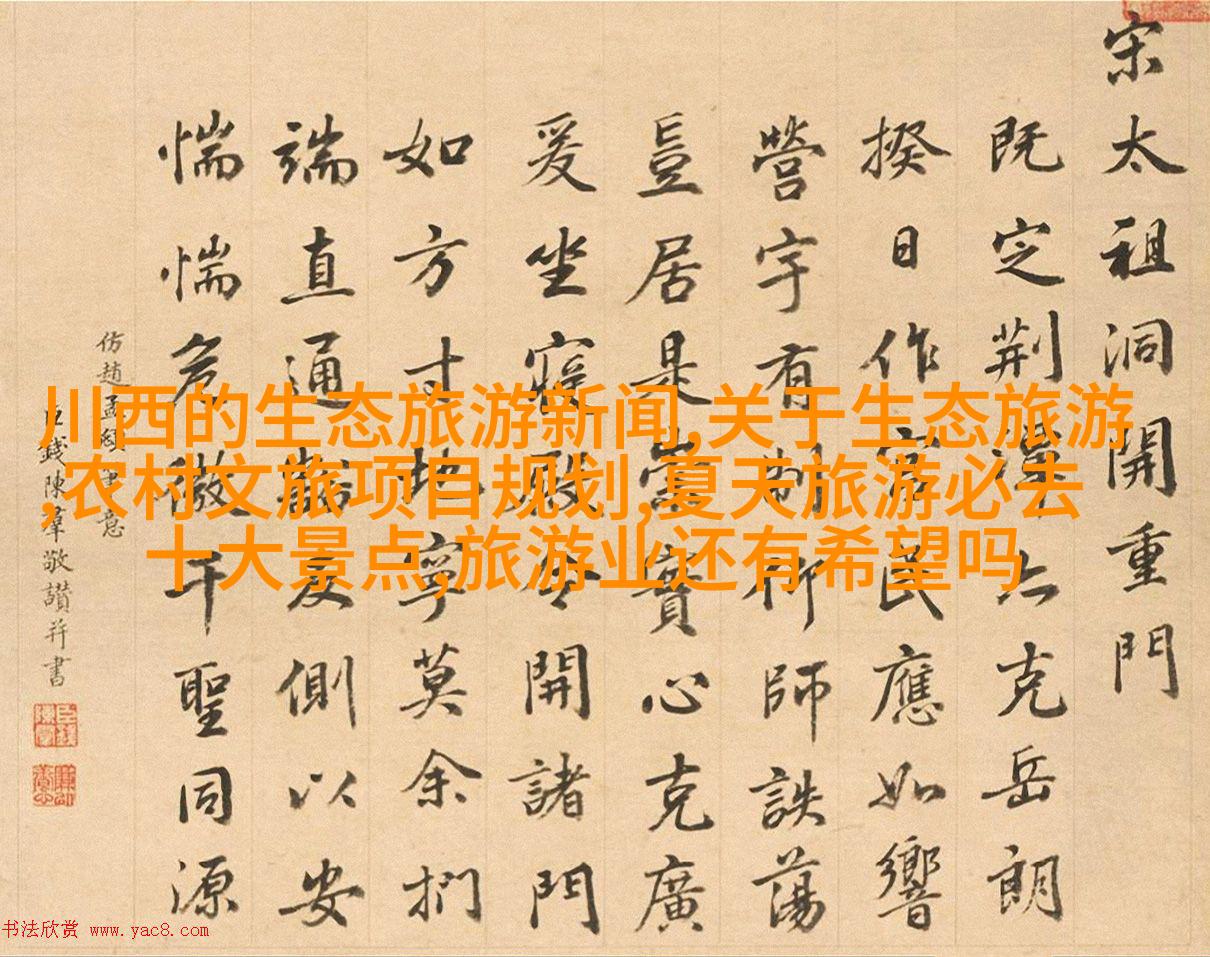 宋太祖洞開重門
既定荆潭亦克岳朗
揆日作宫民應如響
營宇有制仰師詄蕩
豈居是崇實心克廣
爰坐寢殿令開諸門
如方寸地寧莫余捫
端直通豁反側以安
惴惴危微千聖同源
仿趙孟頫書意
臣錢陳羣敬讃并書
川西的生态旅游新闻,关于生态旅游
,农村文旅项目规划,夏天旅游必去
十大景点,旅游业还有希望吗
书法欣赏 www.yac8.com